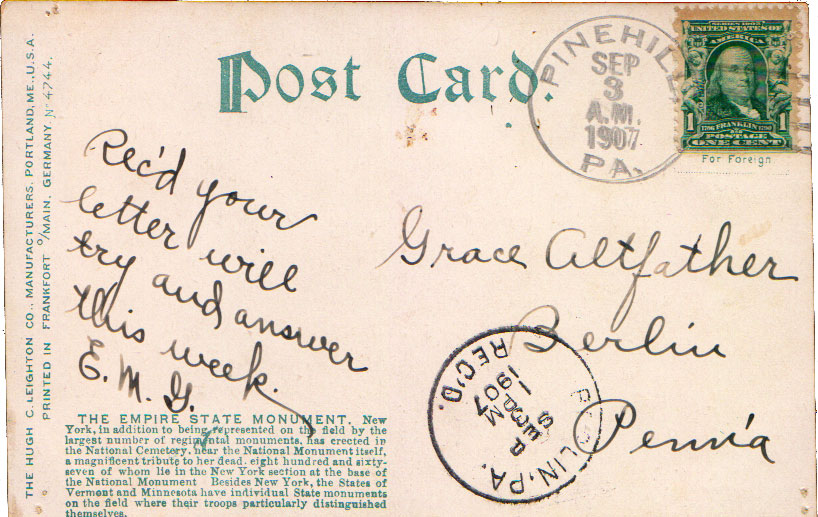 Post Card.
PINEHILL
SEP
3
A.M.
1907
PA.
SERIES 1902
UNITED STATES OF
AMERICA
1 1706 FRANKLIN 1790 1
POSTAGE
ONE CENT
For Foreign
Rec'd your
letter will
try and answer
this week.
E. M. G.
Grace Altfather
Berlin
Penn'a
BERLIN, PA.
SEP
PM
1907
REC'D.
THE EMPIRE STATE MONUMENT. New
York, in addition to being represented on the field by the
largest number of regimental monuments, has erected in
the National Cemetery, near the National Monument itself,
a magnificent tribute to her dead, eight hundred and sixty-
seven of whom lie in the New York section at the base of
the National Monument Besides New York, the States of
Vermont and Minnesota have individual State monuments
on the field where their troops particularly distinguished
themselves.
THE HUGH C. LEIGHTON CO., MANUFACTURERS, PORTLAND, ME., U.S.A.
PRINTED IN FRANKFORT o/MAIN, GERMANY. No 4744.